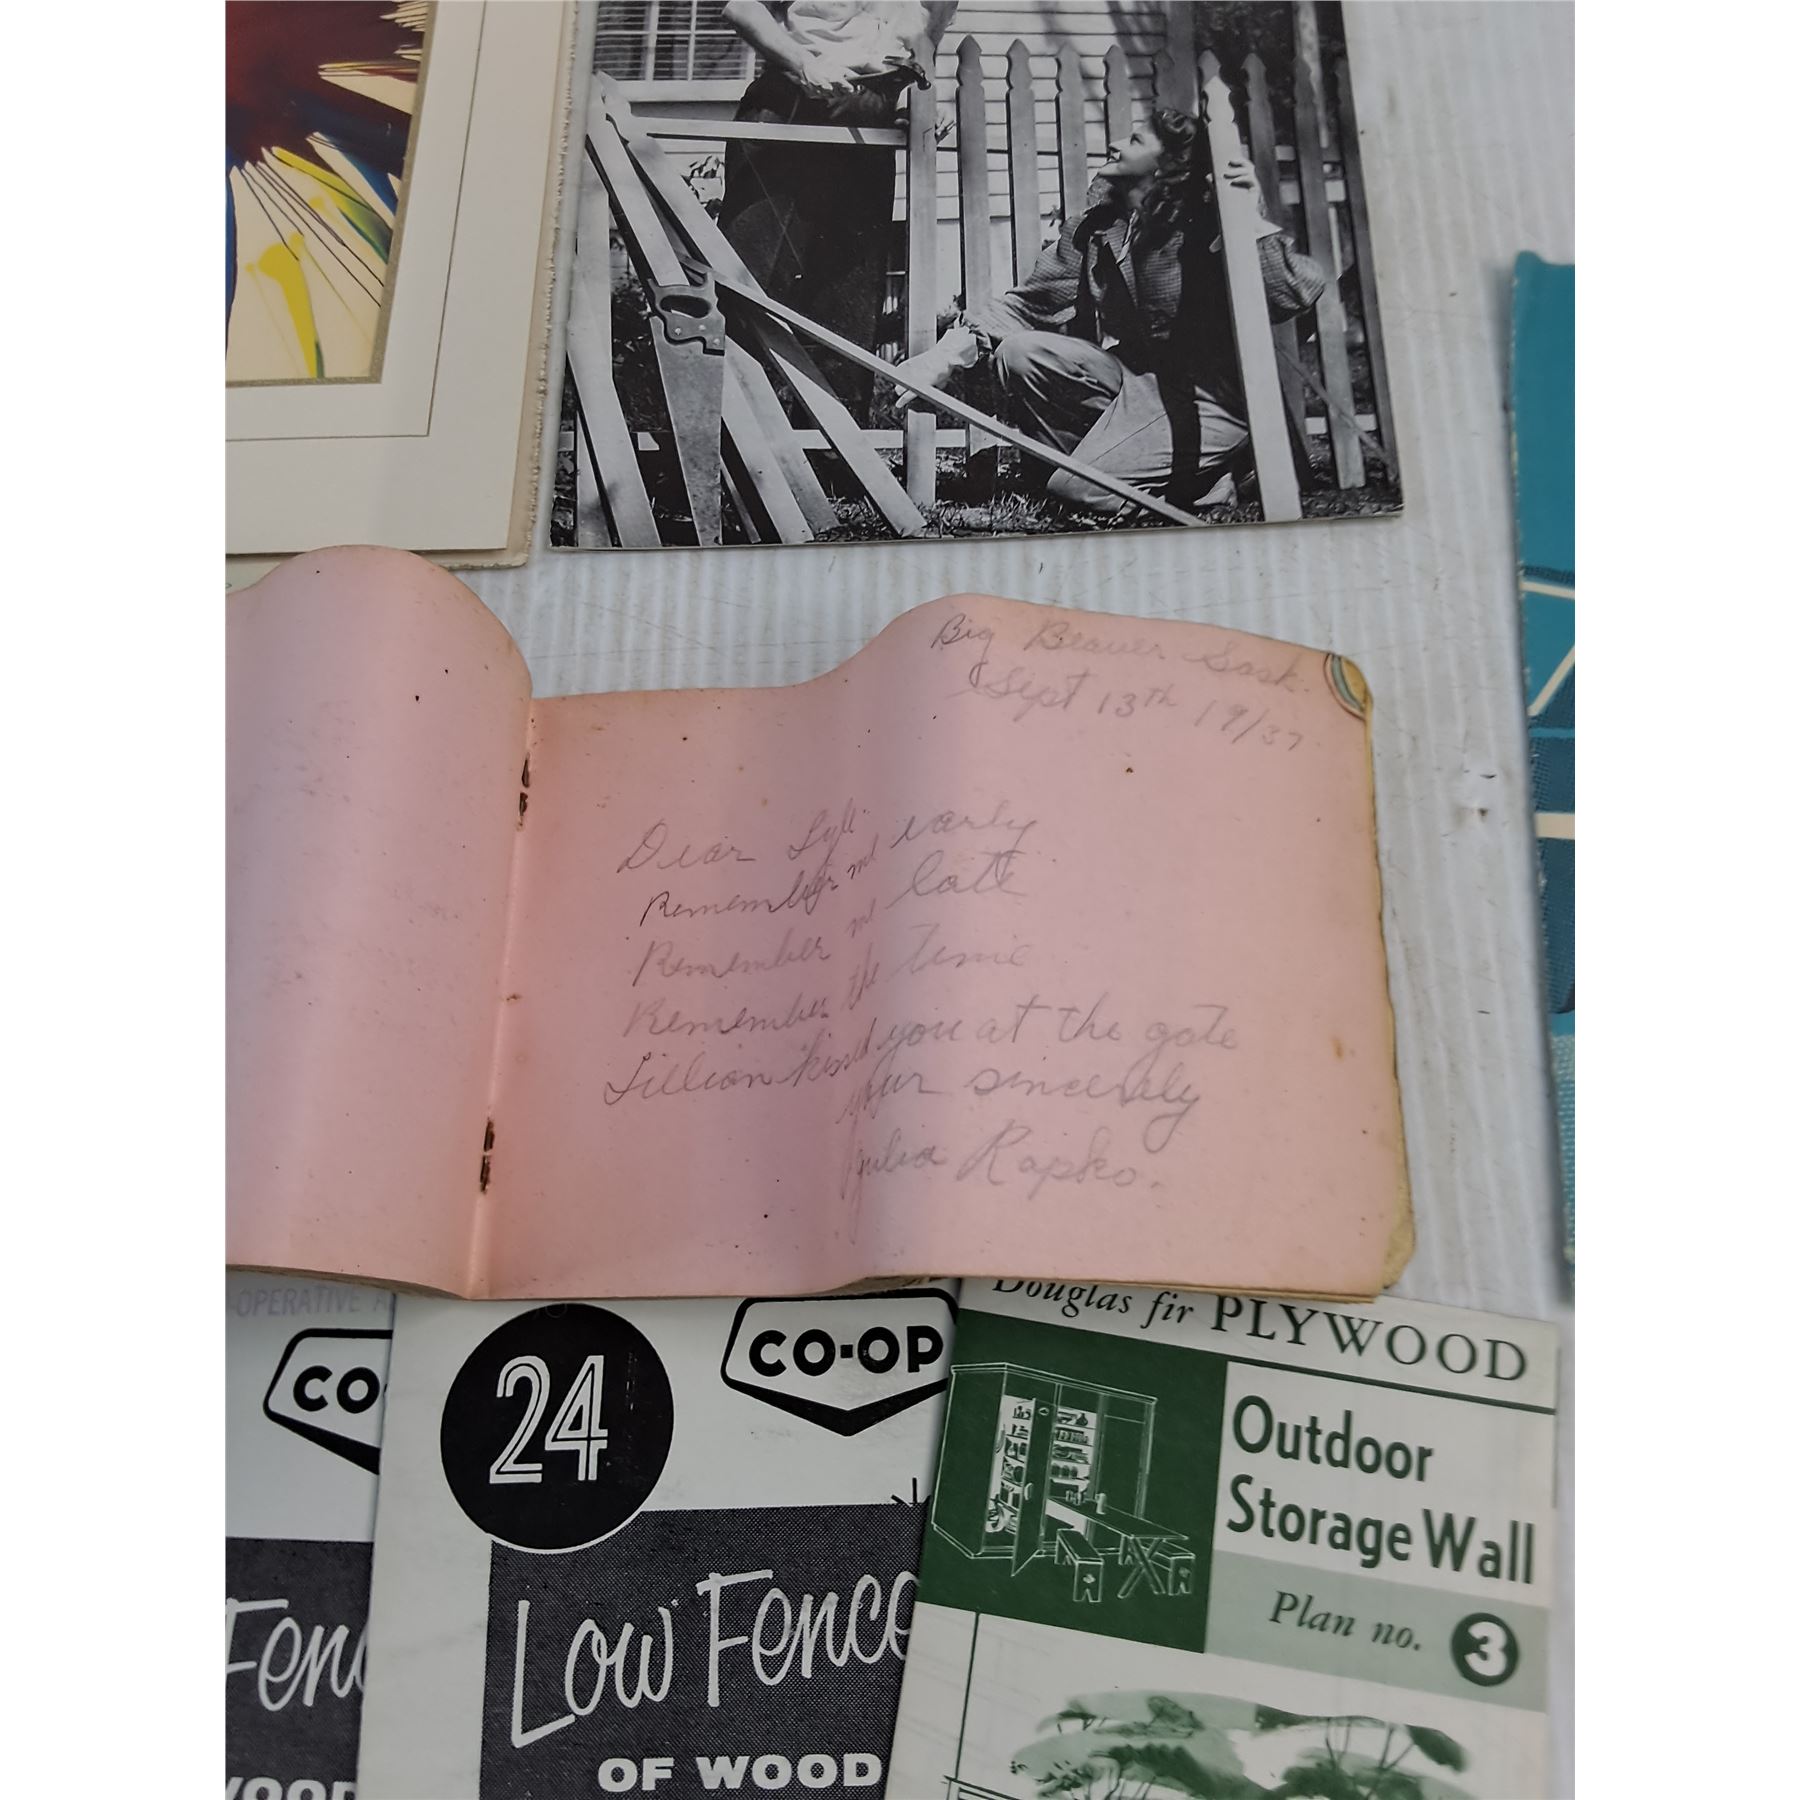 Big Beaver Sask.
Sept 13th 19/37
Dear Lyle
Remember me early
Remember me late
Remember the time
Lillian kissed you at the gate
your sincerely
Julia Rapko.
-OPERATIVE A
CO-
24
CO-OP
Low Fence
OF WOOD
Fenc
WOOD
Douglas fir PLYWOOD
Outdoor
Storage Wall
Plan no. 3